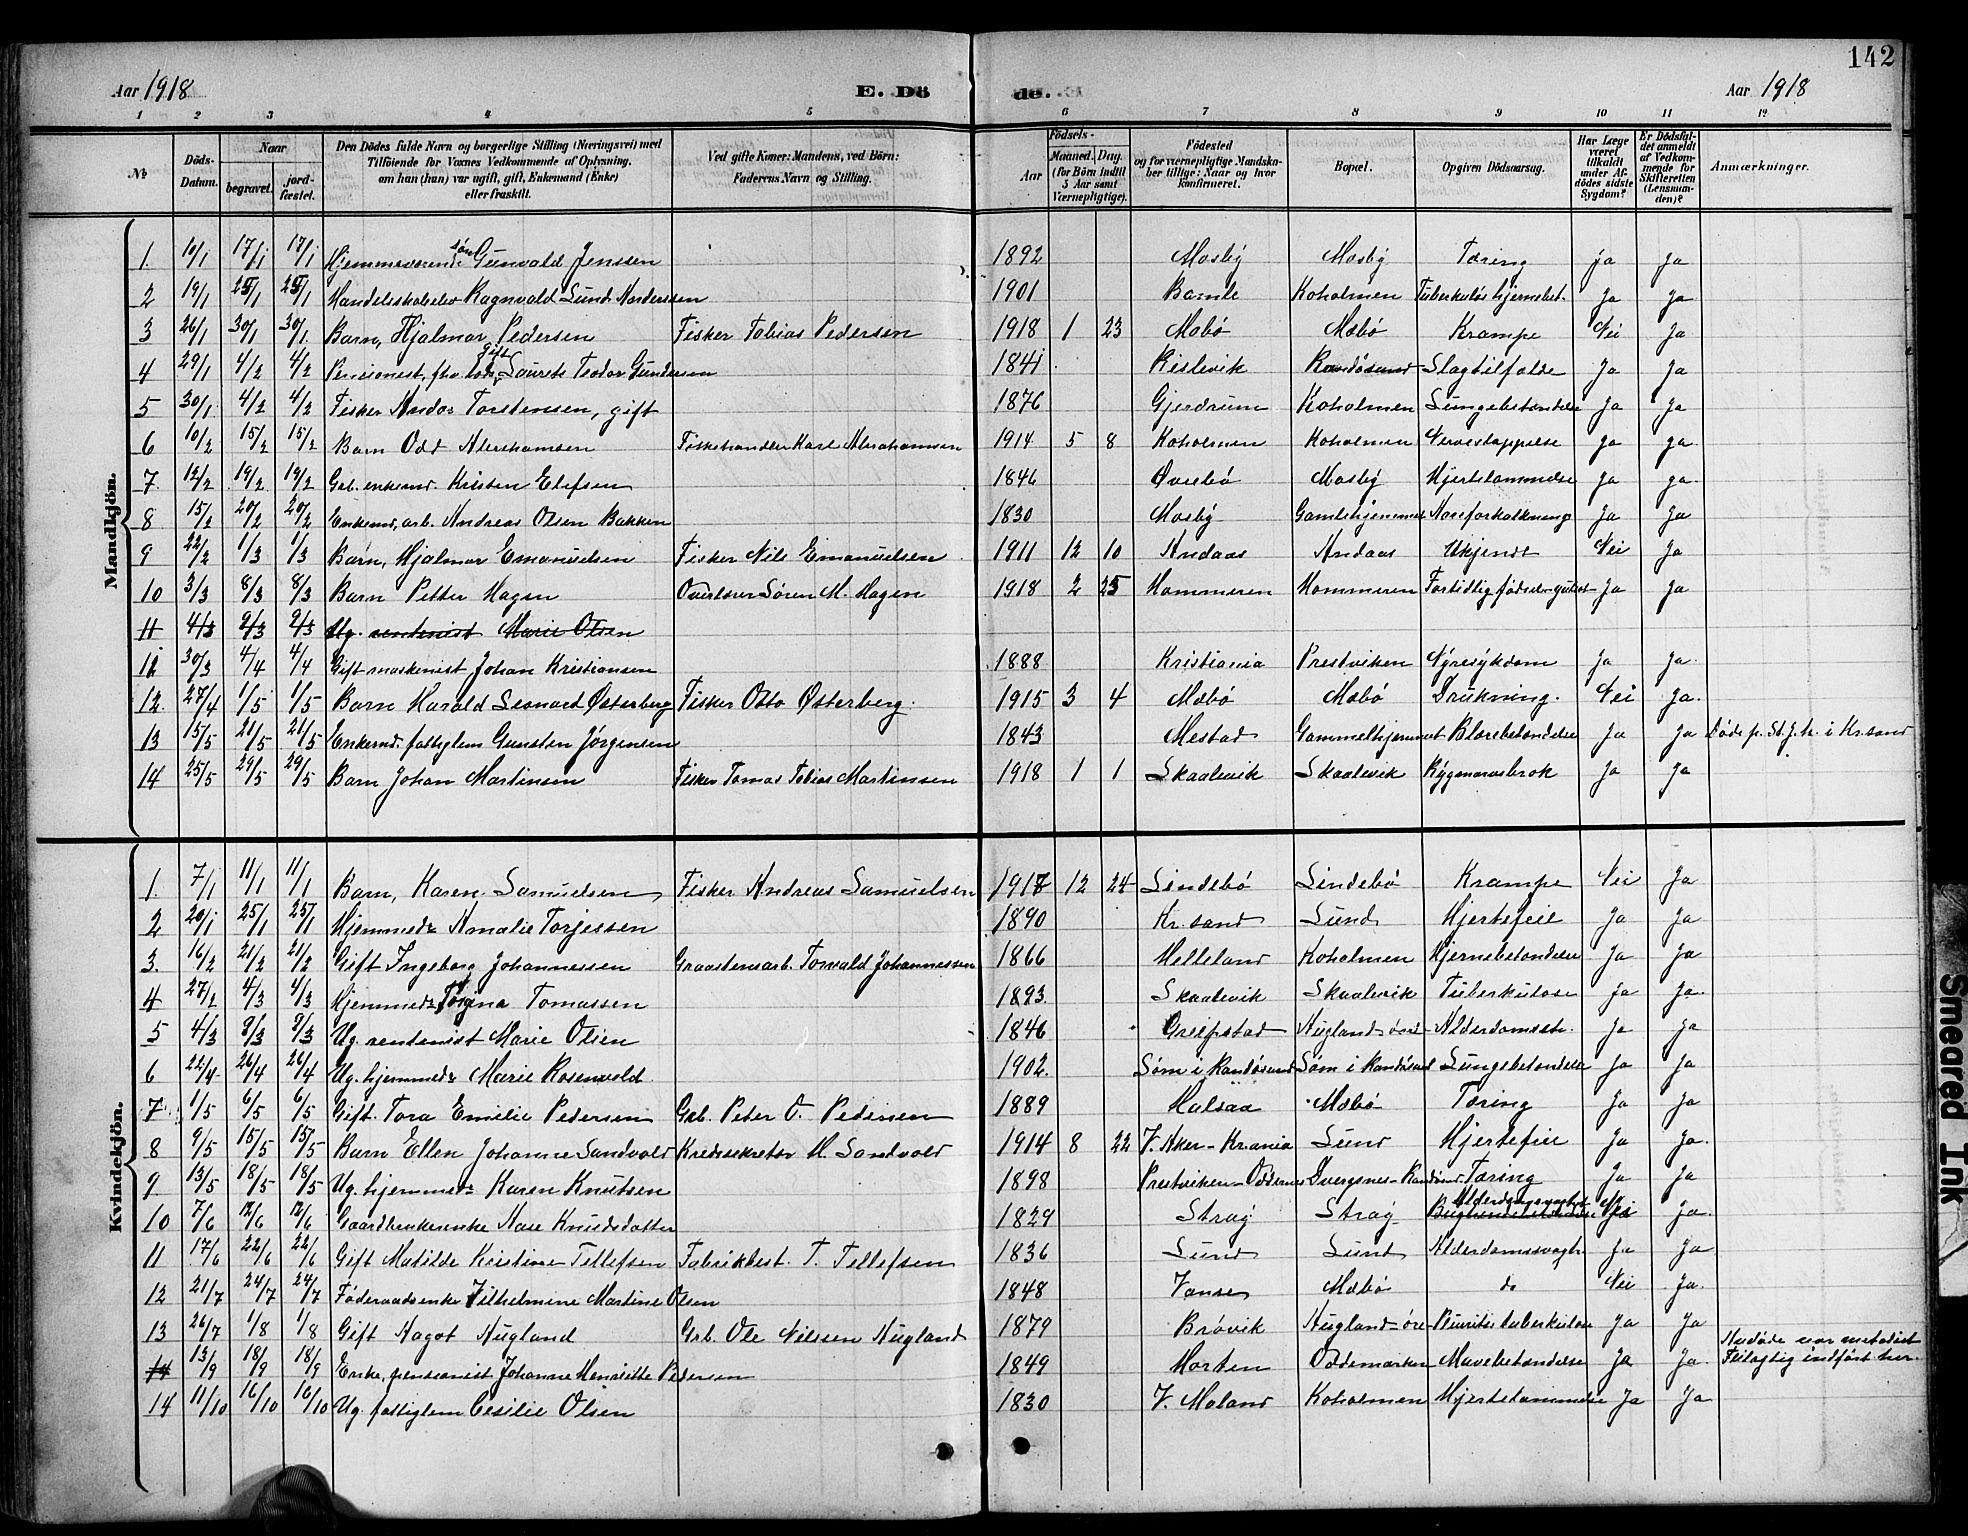 142
Aar 1918 E. Dö de. Aar 1918
1 2 3 4 5 6 7 8 9 10 11 12
№ Döds-Datum. Naar begravet. jord-fæstet. Den Dödes fulde Navn og borgerlige Stilling (Næringsvei) med Tilföiende for Voxnes Vedkommende af Oplysning. om han (hun) var ugift, gift, Enkemand (Enke) eller fraskilt. Ved gifte Koner: Mandens, ved Börn: Faderens Navn og Stilling. Födsels- Aar Maaned. Dag. (for Börn indtil 5 Aar samt Værnepligtige). Födested og for værnepligtige Mandskaber tillige: Naar og hvor konfirmeret. Bopæl. Opgiven Dödsaarsag. Har Læge været tilkaldt under Afdödes sidste Sygdom? Er Dödsfaldet anmeldt af Vedkommende for Skifteretten (Lensmanden)? Anmærkninger.
Mandkjön.
1. 10/1 17/1 17/1 Hjemmeværende søn Gunvald Jenssen 1892 Mosby Mosby Tæring ja ja
2 19/1 25/1 25/1 Ragnvald Lund 1901 Bamle Koholmen Ja ja
3 26/1 30/1 30/1 Barn, Hjalmar Pedersen Fisker Tobias Pedersen 1918 1 23 Mæbø Mæbø Krampe Nei Ja
4 29/1 4/2 4/2 Pensionist, fhv. lods gift Laurits Teodor Gundersen 1841 Kislevik Randøsund Slagtilfælde Ja Ja
5 30/1 4/2 4/2 Fisker Andor Torstensen, gift 1876 Gjerdrum Koholmen Lungebetændelse Ja Ja
6 10/2 15/2 15/2 Barn Odd Abrahamsen Fiskehandler Karl Abrahamsen 1914 5 8 Koholmen Koholmen ja ja.
7 12/2 19/2 19/2 Grb. enkemd. Kristen Elefsen 1846 Øvrebø Mosby Hjertelammelse Ja ja.
8 15/2 20/2 20/2 Enkemd, arb. Andreas Olsen Bakken 1830 Mosby Gamlehjemmet Aareforkalkning Ja Ja
9 22/2 1/3 1/3 Barn, Hjalmar Emanuelsen Fisker Nils Emanuelsen 1911 12 10 Andaas Andaas Ukjendt Nei Ja
10 3/3 8/3 8/3 Barn Petter Hagen Overlærer Søren M. Hagen 1918 2 25 Hommeren Hommeren Fortidlig fødsel Ja Ja
11 4/3 9/3 9/3 Ug. rentenist Marie Olsen
11 30/3 4/4 4/4 Gift maskenist Johan Kristiansen 1888 Kristiania Prestviken Nyresykdom Ja Ja.
12. 27/4 1/5 1/5 Barn Harald Leonard Østerberg Fisker Otto Østerberg. 1915 3 4 Mæbø Mæbø Drukning. Nei ja.
13 15/5 21/5 21/5 Enkemd. fattiglem Gunsten Jørgensen 1843 Mestad Gammelhjemmet Blærebetændelse Ja Ja Døde p. St. J. h. i Kr.sand
14 25/5 29/5 29/5 Barn Johan Martinsen Fisker Tomas Tobias Martinsen 1918 1 1 Skaalevik Skaalevik Rygmarvsbrok Ja Ja
Kvindekjön.
1. 7/1 11/1 11/1 Barn, Karen Samuelsen Fisker Andreas Samuelsen 1917 12 24 Lindebø Lindebø Krampe Nei Ja
2 20/1 25/1 25/1 Hjemmedr Amalie Torjessen 1890 Kr.sand Lund Hjertefeil Ja Ja
3. 16/2 21/2 21/2 Gift Ingeborg Johannessen Graastensarb. Torvald Johannessen 1866 Helleland Koholmen Hjernebetændelse Ja Ja
4 27/2 4/3 4/3 Hjemmedr Torgina Tomassen 1893 Skaalevik Skaalevik Tuberkulose Ja Ja.
5 4/3 9/3 9/3 Ug. rentenist Marie Olsen 1846 Greipstad Augland-øvre Alderdomssv. Ja Ja
6 22/4 26/4 26/4 Ug. hjemmedr Marie Rosenvold 1902. Søm i Randøsund Søm i Randøsund Lungebetændelse Ja Ja
7 1/5 6/5 6/5 Gift. Tora Emilie Pedersen Grb. Peter O. Pedersen 1889 Halsaa Mæbø Tæring Ja Ja
8 9/5 15/5 15/5 Barn Ellen Johanne Sandvold Kredssekretær M. Sandvold 1914 8 22 V. Aker-Krania Lund Hjertefeil Ja Ja.
9. 13/5 18/5 18/5 Ug. hjemmedr Karen Knutsen 1898 Prestviken-Oddernes Dvergsnes-Randøsund Tæring Ja Ja
10 7/6 12/6 12/6 Gaardbrukerenke Aase Knudsdatter 1829 Stray Stray Alderdomssvaghet Nei Ja.
11 17/6 22/6 22/6 Gift Matilde Kristine Tellefsen Fabrikbest. T. Tellefsen 1836 Lund Lund Alderdomssvagh. Ja Ja
12 21/7 24/7 24/7 Føderaadsenke Vilhelmine Martine Olsen 1848 Vanse Mæbø do Nei Ja.
13 26/7 1/8 1/8 Gift Aagot Augland Grb. Ole Nilssen Augland 1879 Brøvik Augland-øvre Ja Ja
14 13/9 18/9 18/9 Enke, pensionist Johanne Henriette Pedersen 1849 Horten Oddemarken Mavebetændelse Ja Ja. Avdøde var metodist Feilagtig indført her.
14 11/10 16/10 16/10 Ug. fattiglem Cesilie Olsen 1830 V. Moland Koholmen Hjertelammelse Ja Ja
Smeared Ink